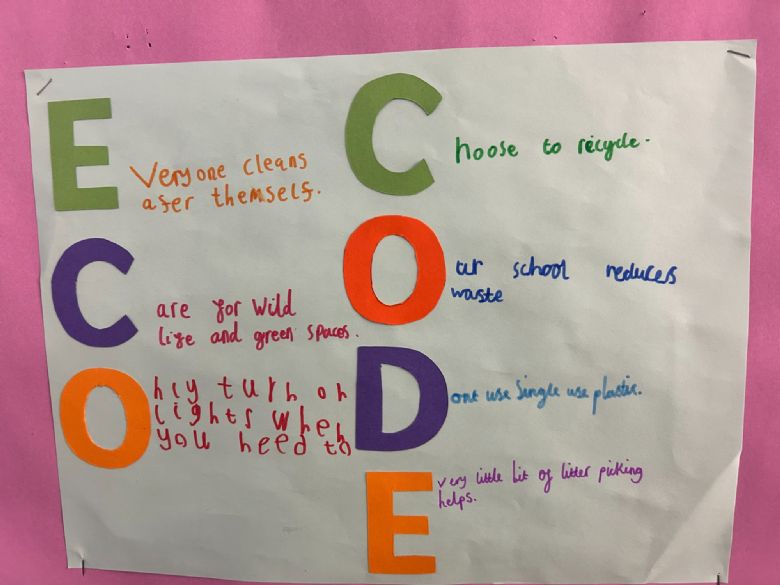 E
Veryone cleans
afer themself.
C
are for wild
life and green spaces.
O
nly turn on
lights when
you need to
C
hoose to recycle.
O
ur school reduces
waste
D
ont use single use plastic.
E
very little bit of litter picking
helps.